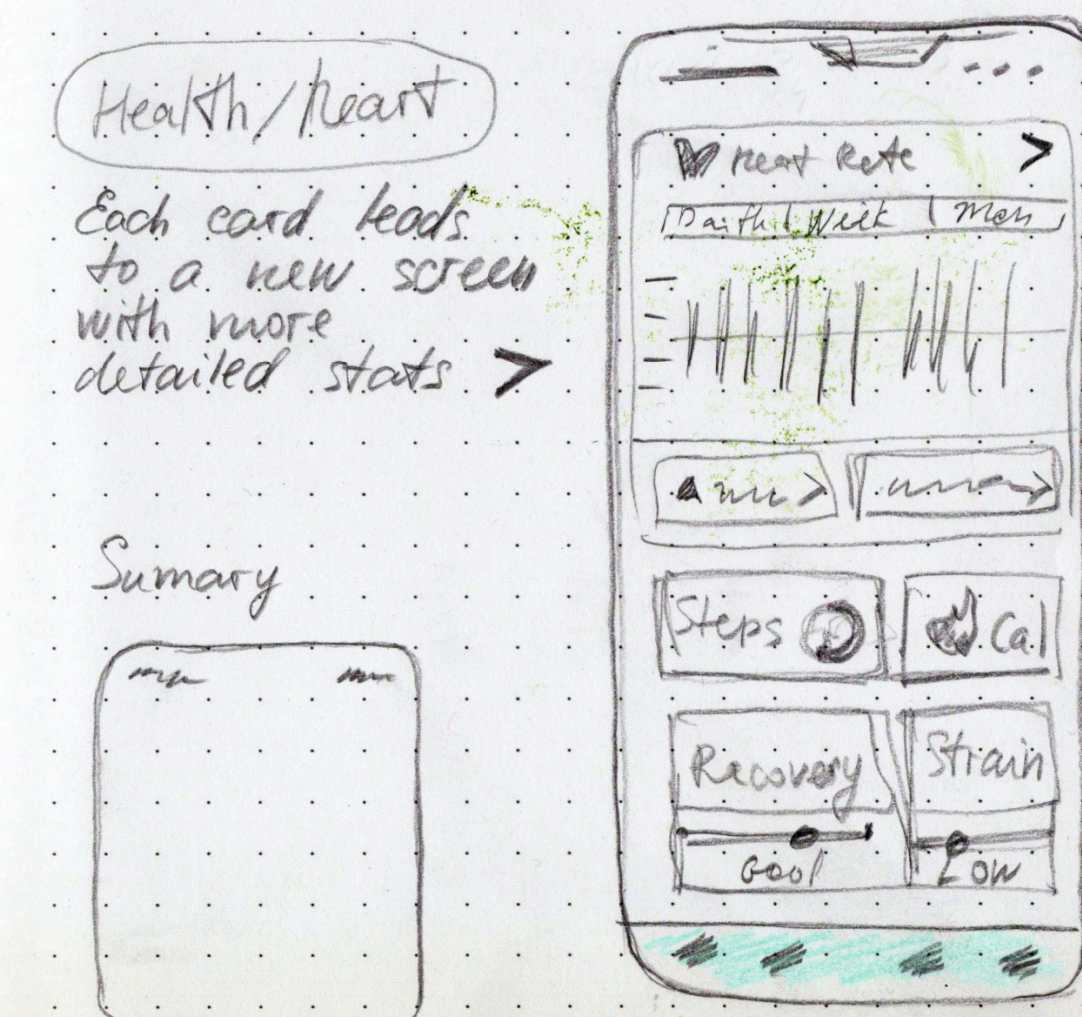 Health/heart
Each card leads
to a new screen
with more
detailed stats >
Sumary
Heart Rate >
Week
Steps
Cal
Recovery
Strain
Low